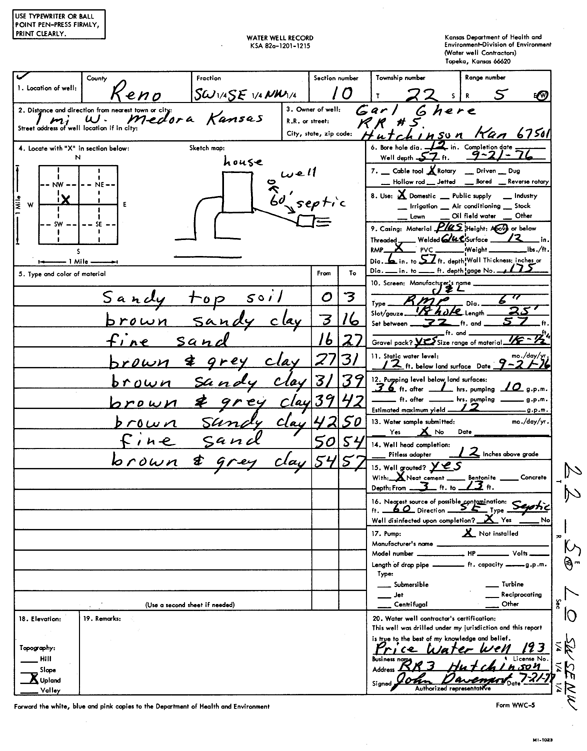 USE TYPEWRITER OR BALL
POINT PEN-PRESS FIRMLY,
PRINT CLEARLY.
WATER WELL RECORD
KSA 82a-1201-1215
Kansas Department of Health and
Environment-Division of Environment
(Water well Contractors)
Topeka, Kansas 66620
1. Location of well:
County
Reno
Fraction
SW 1/4 SE 1/4 NW 1/4
Section number
10
Township number
T 22 S
Range number
R 5 E W
2. Distance and direction from nearest town or city:
1 mi W. Medora Kansas
Street address of well location if in city:
3. Owner of well: Carl Ghere
R.R. or street: RR #5
City, state, zip code: Hutchinson Kan 67501
4. Locate with "X" in section below:
N
NW NE
X
W E
SW SE
S
1 Mile
1 Mile
Sketch map:
house
well
60' septic
6. Bore hole dia. 12 in. Completion date
Well depth 57 ft. 9-21-76
7. Cable tool X Rotary Driven Dug
Hollow rod Jetted Bored Reverse rotary
8. Use: X Domestic Public supply Industry
Irrigation Air conditioning Stock
Lawn Oil field water Other
9. Casing: Material Plas Height: Above or below
Threaded Welded Glue Surface 12 in.
RMP X PVC Weight lbs./ft.
Dia. 6 in. to 57 ft. depth Wall Thickness: inches or
Dia. in. to ft. depth gage No. .175
5. Type and color of material From To
Sandy top soil 0 3
brown sandy clay 3 16
fine sand 16 27
brown & grey clay 27 31
brown sandy clay 31 39
brown & grey clay 39 42
brown sandy clay 42 50
fine sand 50 54
brown & grey clay 54 57
(Use a second sheet if needed)
10. Screen: Manufacturer's name
Type RMP Dia. 6"
Slot/gauze 1/8 hole Length 25'
Set between 32 ft. and 57 ft.
ft. and ft.
Gravel pack? yes Size range of material 1/8-1/2"
11. Static water level: mo./day/yr.
12 ft. below land surface Date 9-21-76
12. Pumping level below land surfaces:
30 ft. after 1 hrs. pumping 10 g.p.m.
ft. after hrs. pumping g.p.m.
Estimated maximum yield 12 g.p.m.
13. Water sample submitted: mo./day/yr.
Yes X No Date
14. Well head completion:
Pitless adapter 12 Inches above grade
15. Well grouted? yes
With: X Neat cement Bentonite Concrete
Depth: From 3 ft. to 13 ft.
16. Nearest source of possible contamination:
ft. 60 Direction SE Type Septic
Well disinfected upon completion? X Yes No
17. Pump: X Not installed
Manufacturer's name
Model number HP Volts
Length of drop pipe ft. capacity g.p.m.
Type:
Submersible Turbine
Jet Reciprocating
Centrifugal Other
18. Elevation:
Topography:
Hill
Slope
X Upland
Valley
19. Remarks:
20. Water well contractor's certification:
This well was drilled under my jurisdiction and this report
is true to the best of my knowledge and belief.
Price Water Well 193
Business name License No.
Address RR3 Hutchinson
Signed John Davenport Date
Authorized representative
Forward the white, blue and pink copies to the Department of Health and Environment
Form WWC-5
T R E Sec 1/4 1/4 1/4
22 - 5 W 10 SWSENW